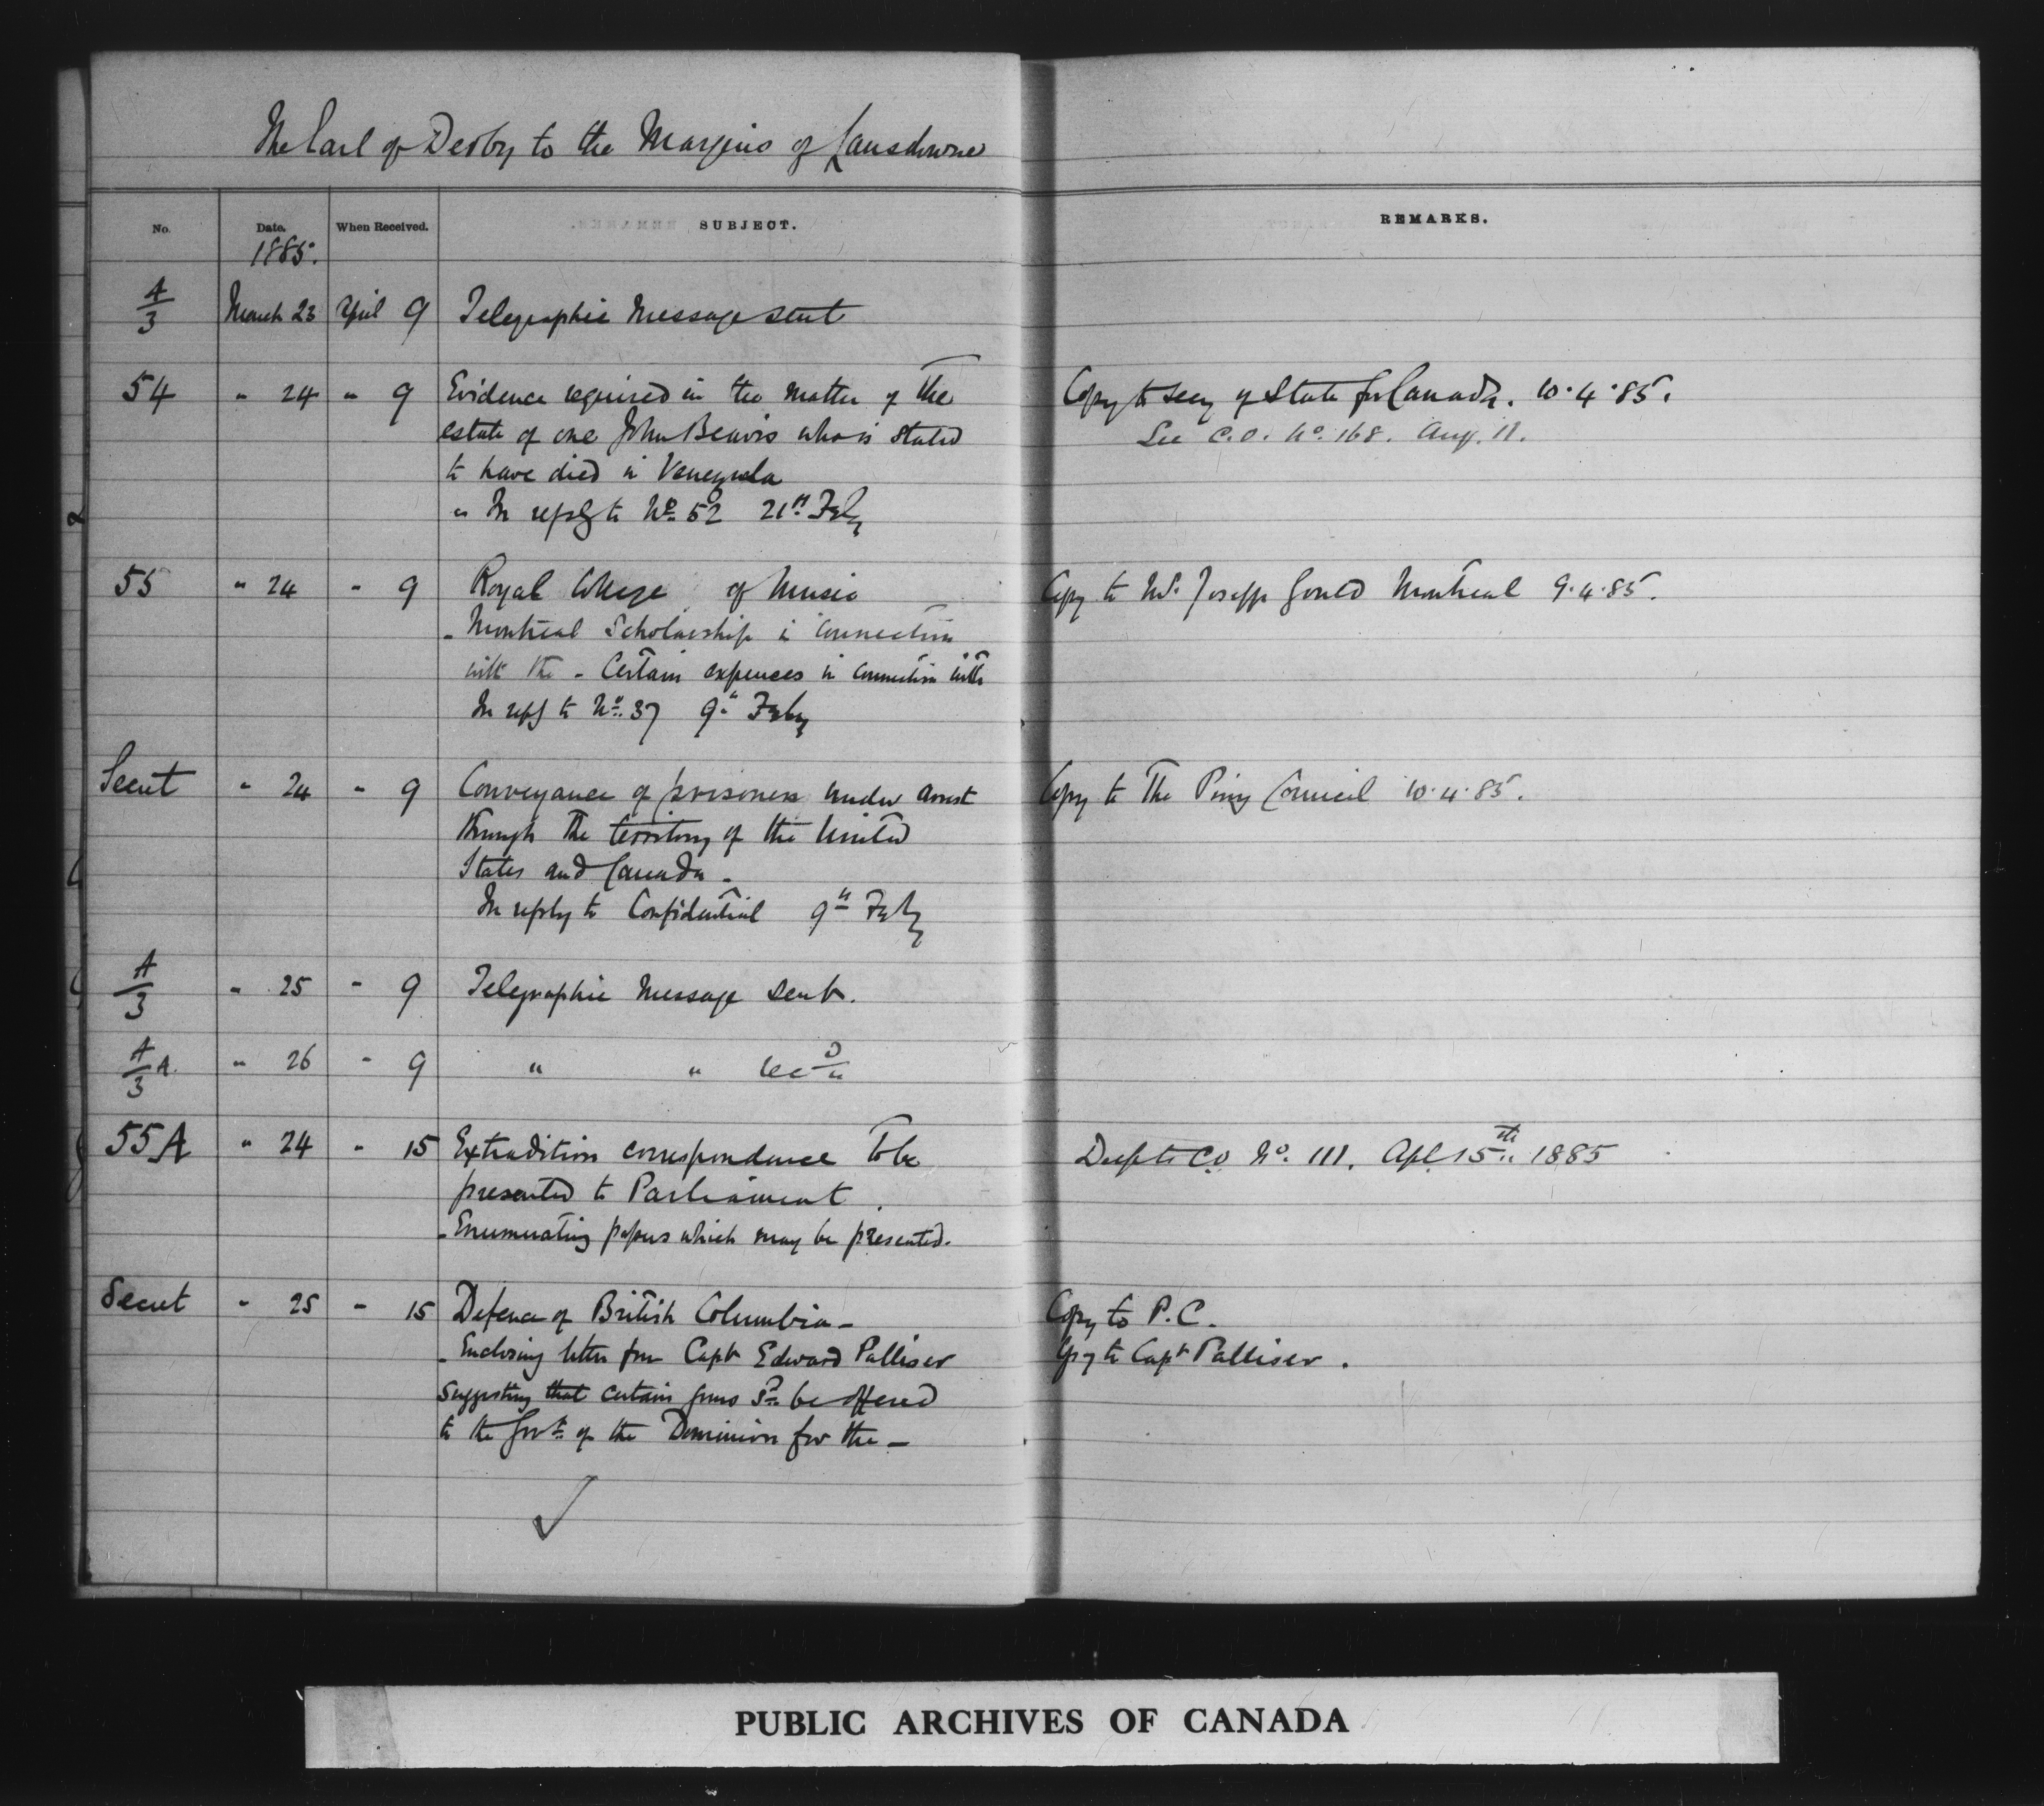 The Earl of Derby to the Marquis of Lansdowne
No. Date. When Received. SUBJECT. REMARKS.
1885.
A/3 March 23 April 9 Telegraphic Message sent
54 " 24 " 9 Evidence required in the matter of the Copy to Secy of State for Canada. 10.4.85.
estate of one John Beavis who is stated See C.O. No. 168. Aug. 11.
to have died in Venezuela
" In reply to No. 52 21st Feby
55 " 24 " 9 Royal College of Music Copy to Mr. Joseph Gould Montreal 9.4.85.
- Montreal Scholarship in connection
with the - Certain expences in connection with
In reply to No. 37 9th Feby
Secret " 24 " 9 Conveyance of prisoners under arrest Copy to The Privy Council 10.4.85.
through the territory of the United
States and Canada -
In reply to Confidential 9th Feby
A/3 " 25 " 9 Telegraphic Message sent.
A/3 A. " 26 " 9 " "
55A " 24 " 15 Extradition correspondence to be Desp to C.O. No. 111. Apl 15th 1885
presented to Parliament.
- Enumerating papers which may be presented.
Secret " 25 " 15 Defence of British Columbia - Copy to P.C.
- Enclosing letter from Capt Edward Palliser Copy to Capt Palliser.
suggesting that certain guns sd be offered
to the Govt of the Dominion for the -
PUBLIC ARCHIVES OF CANADA